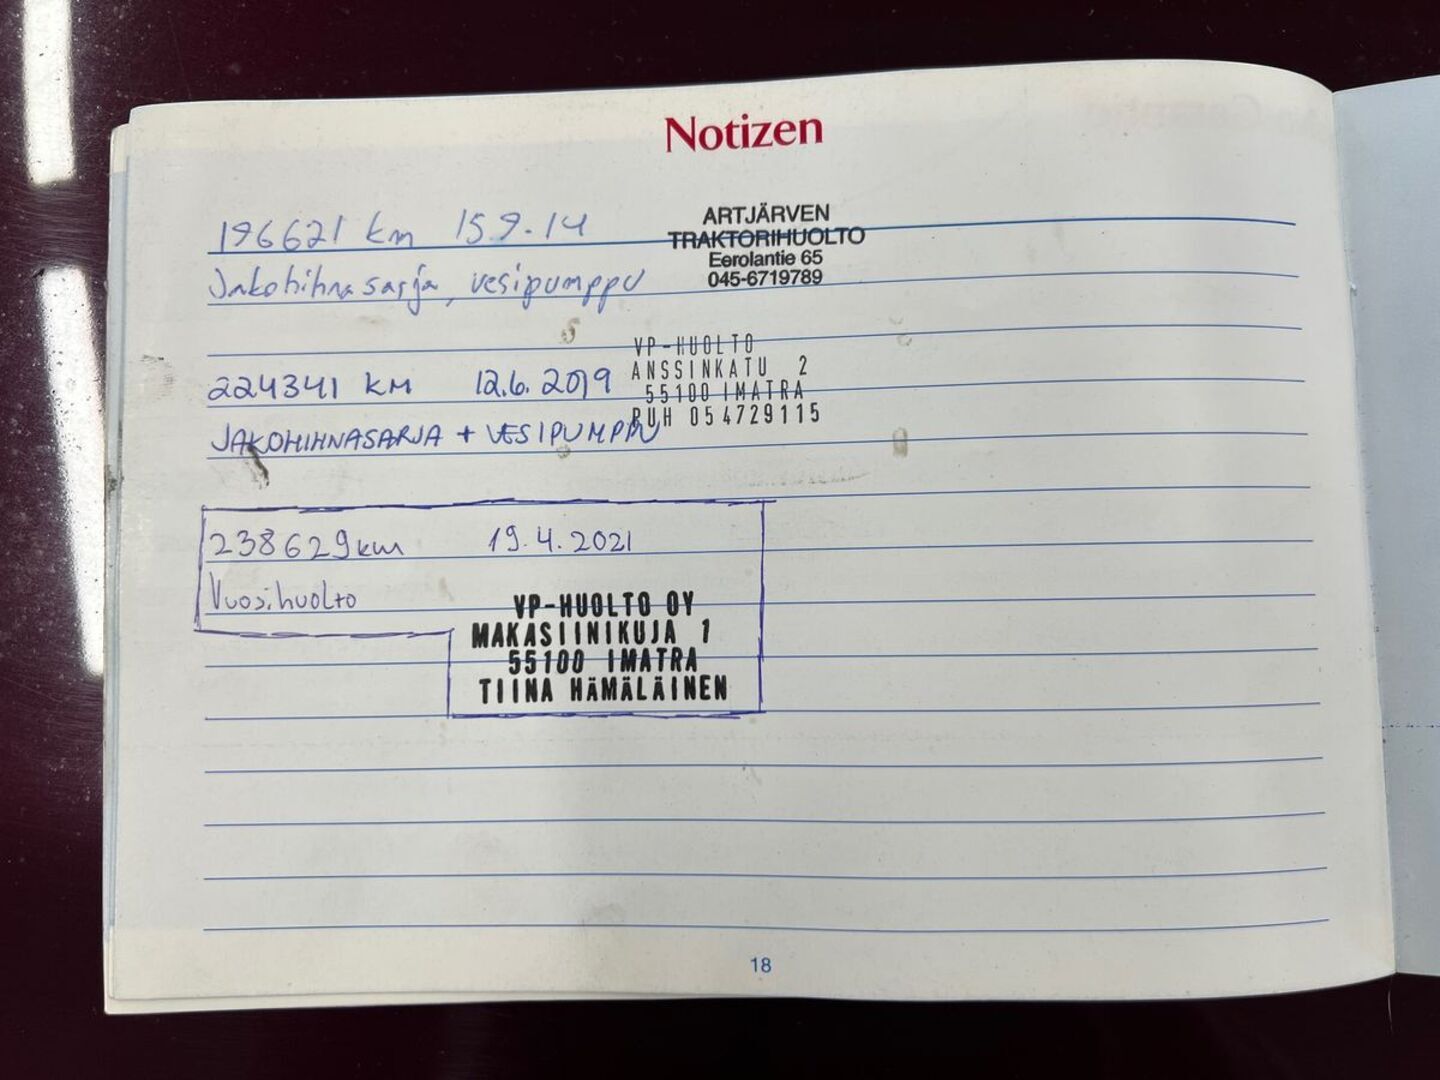 Notizen
196621 km 15.9.14
ARTJÄRVEN
TRAKTORIHUOLTO
Eerolantie 65
045-6719789
Jakohihnasarja, vesipumppu
VP-HUOLTO
ANSSINKATU 2
55100 IMATRA
PUH 054729115
224341 KM 12.6.2019
JAKOHIHNASARJA + VESIPUMPPU
238629km 19.4.2021
Vuosihuolto
VP-HUOLTO OY
MAKASIINIKUJA 1
55100 IMATRA
TIINA HÄMÄLÄINEN
18